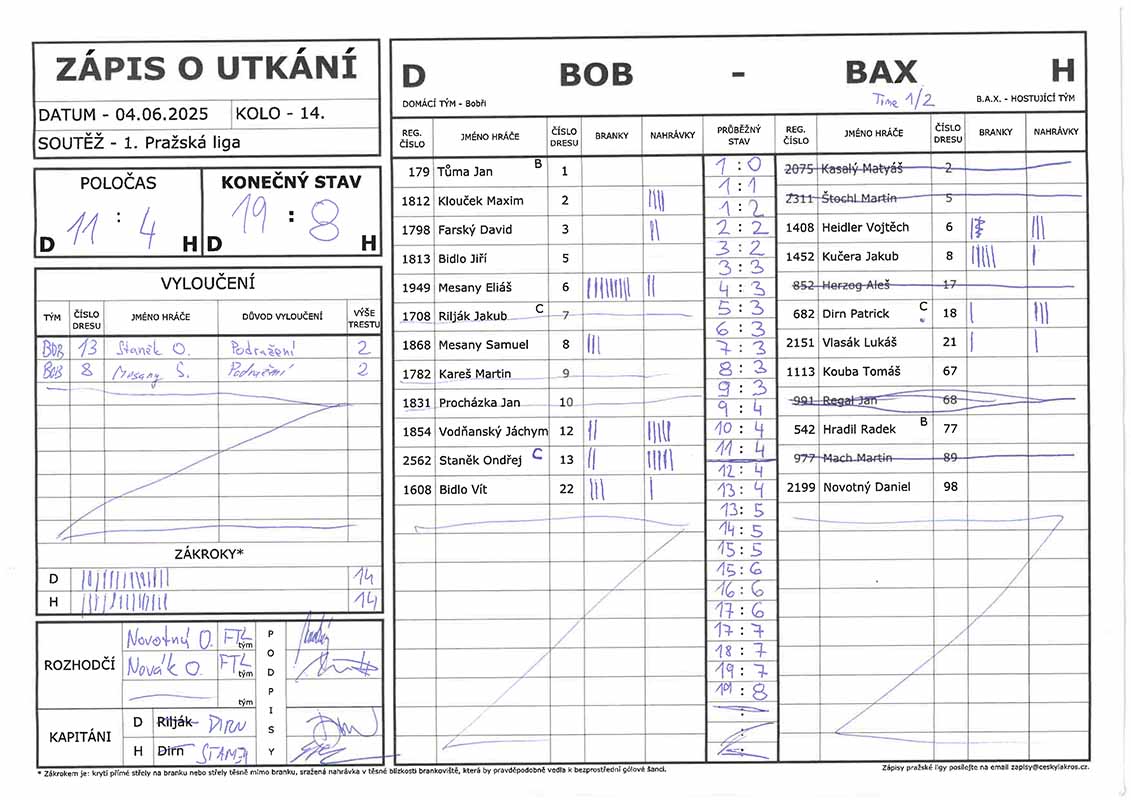 ZÁPIS O UTKÁNÍ
DATUM - 04.06.2025 KOLO - 14.
SOUTĚŽ - 1. Pražská liga
POLOČAS KONEČNÝ STAV
11 : 4 19 : 8
D H D H
VYLOUČENÍ
TÝM ČÍSLO DRESU JMÉNO HRÁČE DŮVOD VYLOUČENÍ VÝŠE TRESTU
BOB 13 Staněk O. Podražení 2
BOB 8 Mesany S. 2
ZÁKROKY*
D 14
H 14
ROZHODČÍ
Novotný O. FTL tým
Novák O. FTL tým
tým
PODPISY
KAPITÁNI
D Rilják DIRN
H Dirn
D BOB - BAX H
DOMÁCÍ TÝM - Bobři Time 1/2 B.A.X. - HOSTUJÍCÍ TÝM
REG. ČÍSLO JMÉNO HRÁČE ČÍSLO DRESU BRANKY NAHRÁVKY PRŮBĚŽNÝ STAV REG. ČÍSLO JMÉNO HRÁČE ČÍSLO DRESU BRANKY NAHRÁVKY
179 Tůma Jan B 1
1812 Klouček Maxim 2
1798 Farský David 3
1813 Bidlo Jiří 5
1949 Mesany Eliáš 6
1708 Rilják Jakub C 7
1868 Mesany Samuel 8
1782 Kareš Martin 9
1831 Procházka Jan 10
1854 Vodňanský Jáchym 12
2562 Staněk Ondřej C 13
1608 Bidlo Vít 22
1 : 0
1 : 1
1 : 2
2 : 2
3 : 2
3 : 3
4 : 3
5 : 3
6 : 3
7 : 3
8 : 3
9 : 3
9 : 4
10 : 4
11 : 4
12 : 4
13 : 4
13 : 5
14 : 5
15 : 5
15 : 6
16 : 6
17 : 6
17 : 7
18 : 7
19 : 7
19 : 8
:
:
2075 Kasalý Matyáš 2
2311 Štochl Martin 5
1408 Heidler Vojtěch 6
1452 Kučera Jakub 8
852 Herzog Aleš 17
682 Dirn Patrick C 18
2151 Vlasák Lukáš 21
1113 Kouba Tomáš 67
991 Regal Jan 68
542 Hradil Radek B 77
977 Mach Martin 89
2199 Novotný Daniel 98
* Zákrokem je: krytí přímé střely na branku nebo střely těsně mimo branku, sražená nahrávka v těsné blízkosti brankoviště, která by pravděpodobně vedla k bezprostřední gólové šanci.
Zápisy pražské ligy posílejte na email zapisy@ceskylakros.cz.